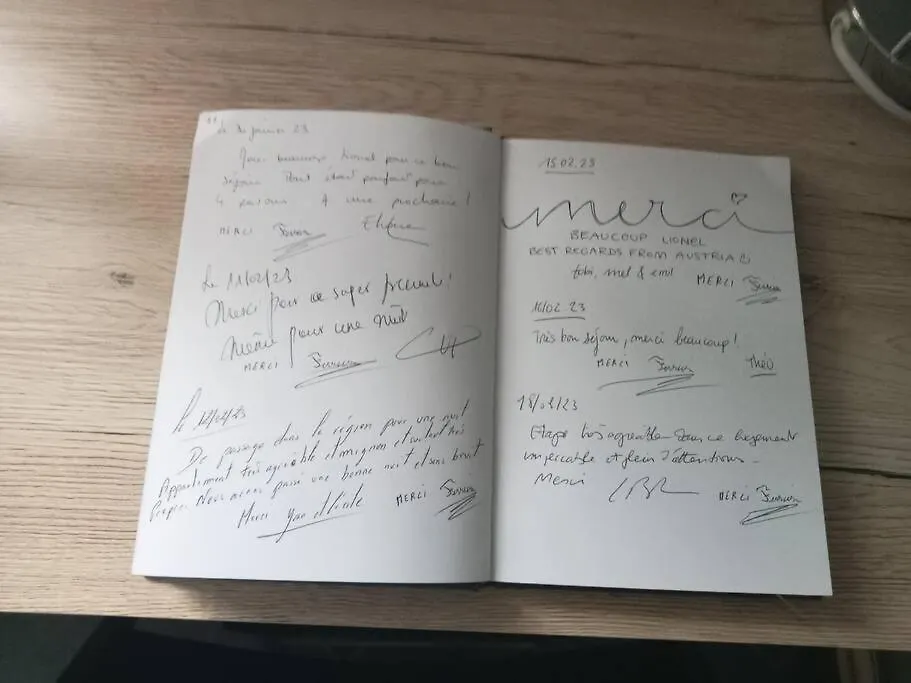 le 30 janvier 23
Merci beaucoup Lionel pour ce beau
séjour. Tout était parfait pour
4 A une prochaine !
MERCI
Le 11/02/23
Merci pour ce super accueil !
Même pour une nuit
MERCI
le 12/02/23
De passage dans la région pour une nuit
Appartement très agréable et mignon et surtout très
propre. Nous avons passé une bonne nuit et sans bruit
Merci
MERCI
15.02.23
merci
BEAUCOUP LIONEL
BEST REGARDS FROM AUSTRIA
tobi, mel & emil
MERCI
16/02 23
Très bon séjour, merci beaucoup !
MERCI Théo
18/02/23
Etape très agréable dans ce logement
impeccable et plein d'attentions.
Merci
MERCI